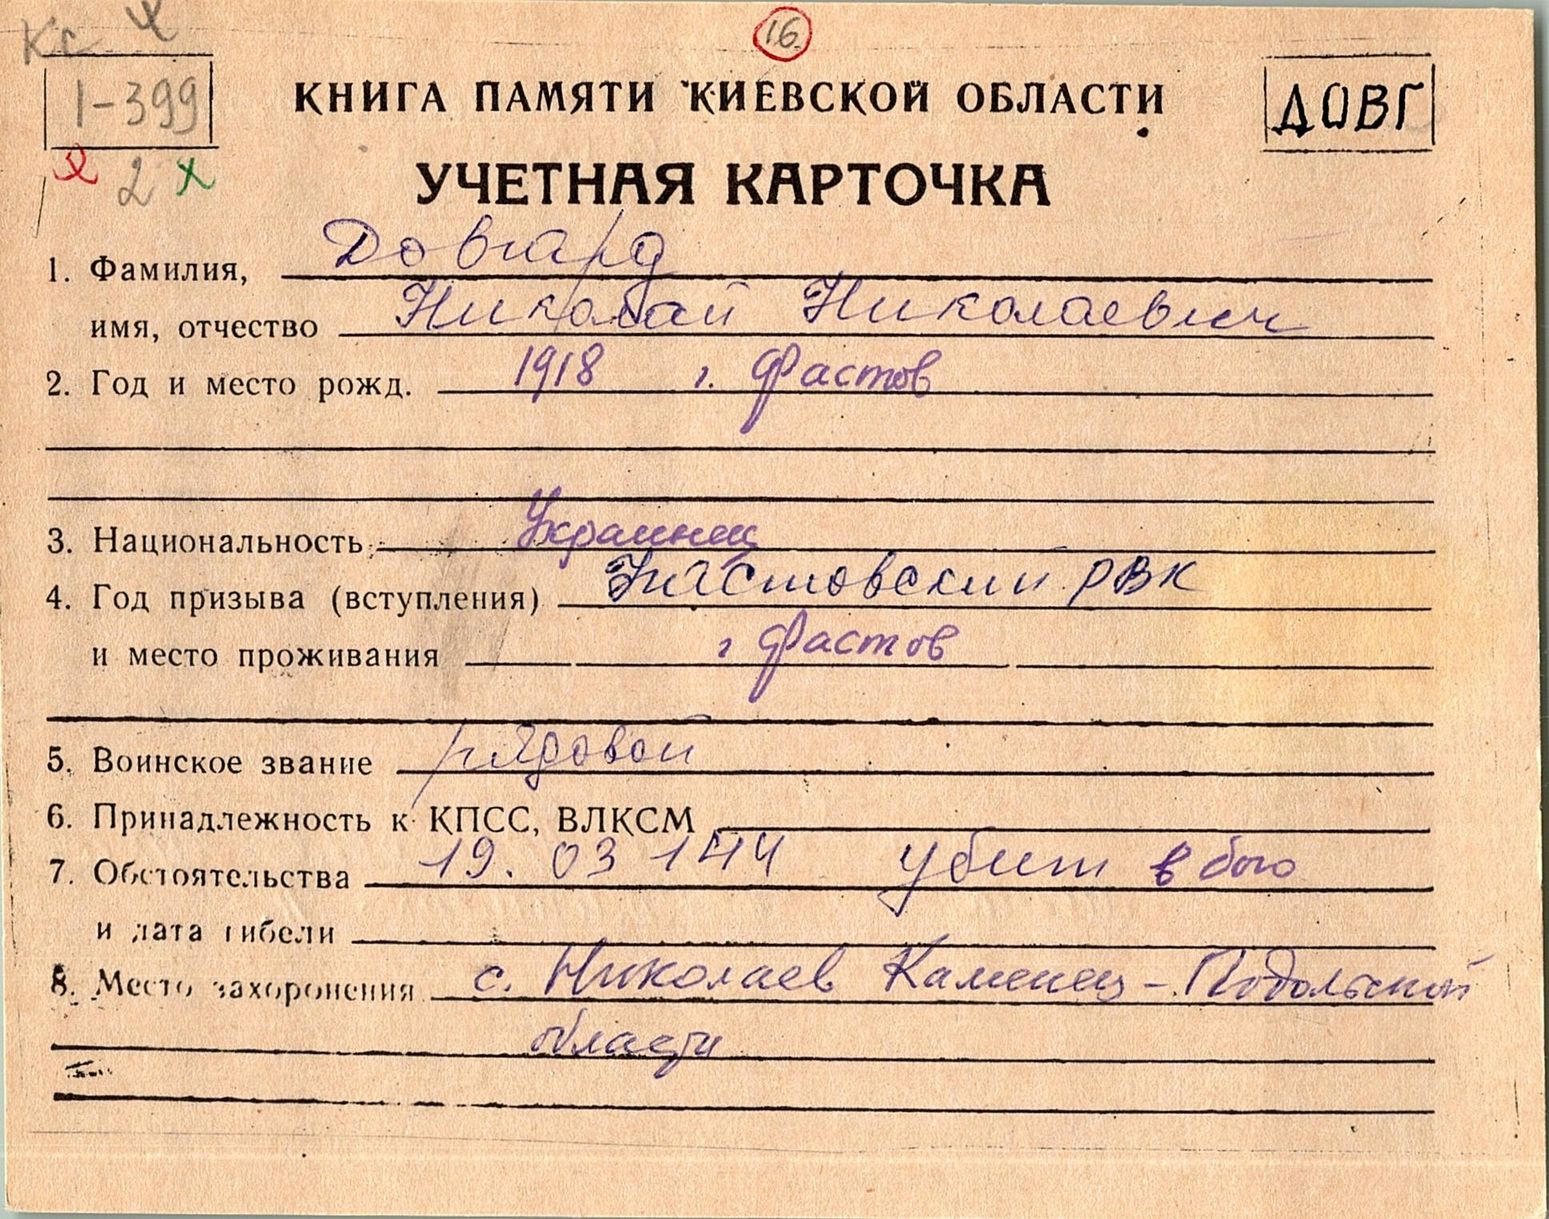 Кс
16
1-399
КНИГА ПАМЯТИ КИЕВСКОЙ ОБЛАСТИ
ДОВГ
2
УЧЕТНАЯ КАРТОЧКА
1. Фамилия, Довгард
имя, отчество Николай Николаевич
2. Год и место рожд. 1918 г. Фастов
3. Национальность Украинец
4. Год призыва (вступления) Фастовский РВК
и место проживания г Фастов
5. Воинское звание рядовой
6. Принадлежность к КПСС, ВЛКСМ
7. Обстоятельства 19. 03 144 убит в бою
и дата гибели
8. Место захоронения с. Николаев Каменец-Подольской
области